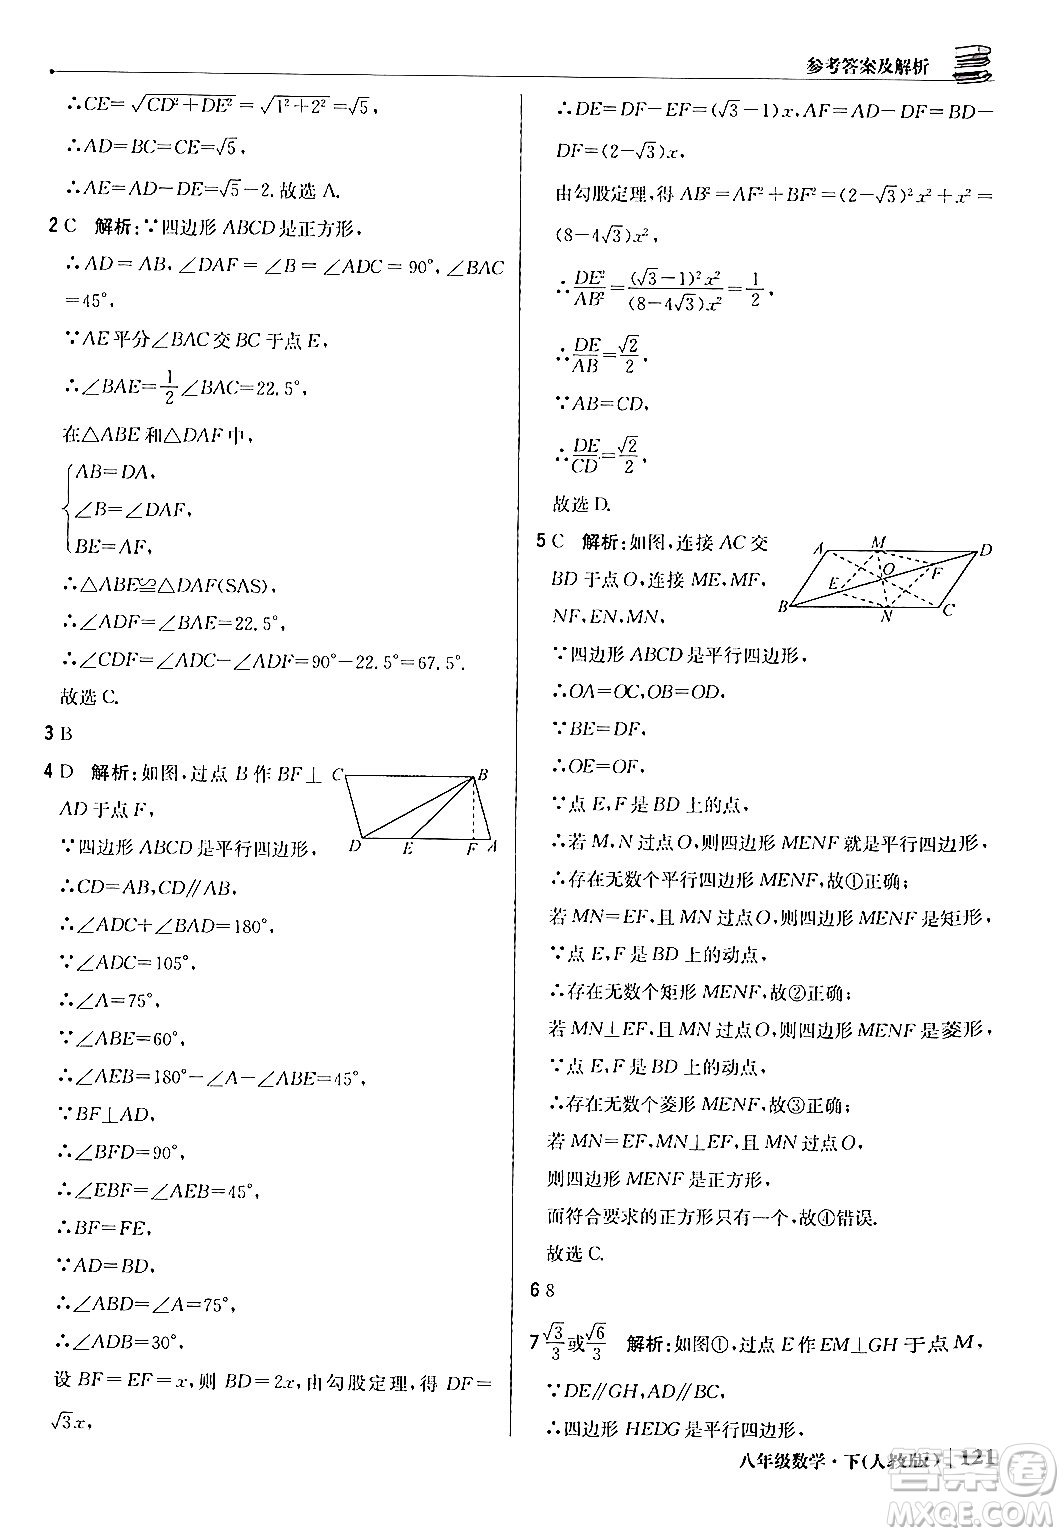 参考答案及解析
∴CE=√(CD²+DE²)=√(1²+2²)=√5,
∴AD=BC=CE=√5,
∴AE=AD-DE=√5-2.故选 A.
2 C 解析:∵四边形 ABCD 是正方形,
∴AD=AB,∠DAF=∠B=∠ADC=90°,∠BAC
=45°,
∵AE 平分∠BAC 交 BC 于点 E,
∴∠BAE=1/2∠BAC=22.5°,
在△ABE 和△DAF 中,
AB=DA,
∠B=∠DAF,
BE=AF,
∴△ABE≌△DAF(SAS),
∴∠ADF=∠BAE=22.5°,
∴∠CDF=∠ADC-∠ADF=90°-22.5°=67.5°.
故选 C.
3 B
4 D 解析:如图,过点 B 作 BF⊥
AD 于点 F,
∵四边形 ABCD 是平行四边形,
∴CD=AB,CD∥AB,
∴∠ADC+∠BAD=180°,
∵∠ADC=105°,
∴∠A=75°,
∵∠ABE=60°,
∴∠AEB=180°-∠A-∠ABE=45°,
∵BF⊥AD,
∴∠BFD=90°,
∴∠EBF=∠AEB=45°,
∴BF=FE,
∵AD=BD,
∴∠ABD=∠A=75°,
∴∠ADB=30°,
设 BF=EF=x,则 BD=2x,由勾股定理,得 DF=
√3x,
C B
D E F A
∴DE=DF-EF=(√3-1)x,AF=AD-DF=BD-
DF=(2-√3)x,
由勾股定理,得 AB²=AF²+BF²=(2-√3)²x²+x²=
(8-4√3)x²,
∴DE²/AB²=(√3-1)²x²/(8-4√3)x²=1/2,
∴DE/AB=√2/2,
∵AB=CD,
∴DE/CD=√2/2,
故选 D.
5 C 解析:如图,连接 AC 交
BD 于点 O,连接 ME,MF,
NF,EN,MN,
A M D
O F
E
B N C
∵四边形 ABCD 是平行四边形,
∴OA=OC,OB=OD,
∵BE=DF,
∴OE=OF,
∵点 E,F 是 BD 上的点,
∴若 M,N 过点 O,则四边形 MENF 就是平行四边形,
∴存在无数个平行四边形 MENF,故①正确;
若 MN=EF,且 MN 过点 O,则四边形 MENF 是矩形,
∵点 E,F 是 BD 上的动点,
∴存在无数个矩形 MENF,故②正确;
若 MN⊥EF,且 MN 过点 O,则四边形 MENF 是菱形,
∵点 E,F 是 BD 上的动点,
∴存在无数个菱形 MENF,故③正确;
若 MN=EF,MN⊥EF,且 MN 过点 O,
则四边形 MENF 是正方形,
而符合要求的正方形只有一个,故④错误.
故选 C.
6 8
7 √3/3或√6/3 解析:如图①,过点 E 作 EM⊥GH 于点 M,
∵DE∥GH,AD∥BC,
∴四边形 HEDG 是平行四边形,
八年级数学·下(人教版) 121
答案圈
MXQE.COM